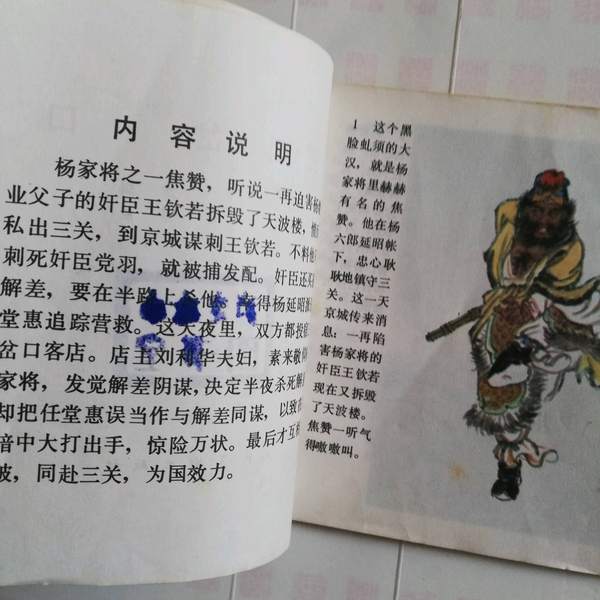 内容说明
杨家将之一焦赞，听说一再迫害杨
业父子的奸臣王钦若拆毁了天波楼，
私出三关，到京城谋刺王钦若。不料
刺死奸臣党羽，就被捕发配。奸臣还
解差，要在半路上杀他。得杨延昭
堂惠追踪营救。这天夜里，双方都投
岔口客店。店主刘利华夫妇，素来敬
家将，发觉解差阴谋，决定半夜杀死解
却把任堂惠误当作与解差同谋，以致
暗中大打出手，惊险万状。最后才互
皮，同赴三关，为国效力。
1 这个黑
脸虬须的大
汉，就是杨
家将里赫赫
有名的焦
赞。他在杨
六郎延昭帐
下，忠心耿
耿地镇守三
关。这一天
京城传来消
息：一再陷
害杨家将的
奸臣王钦若
现在又拆毁
了天波楼。
焦赞一听气
得嗷嗷叫。